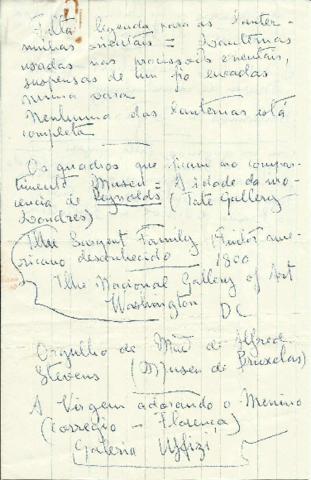 Falta legenda para as lanter-
ninhas orientais = Lanternas
usadas nas procissões orientais,
suspensas de um fio enfiadas
numa vara
Nenhuma das lanternas está
completa
Os quadros que ficam no compar-
timento Museu = A idade da ino-
cencia de Reynolds (Tate Gallery
Londres)
The Sargent Family Pintor ame-
ricano desconhecido 1800
The Nacional Gallery of Art
Washington DC
Orgulho de Mãe de Alfred
Stevens (Museu de Bruxelas)
A Virgem adorando o Menino
(Corregio - Florença)
Galeria Uffizi